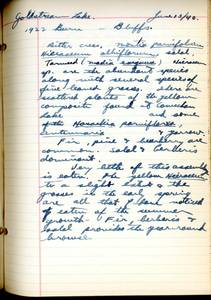 Goldstream Lake. June 13/40.
1922 Burn — Bluffs.
Bitter cress, montia parvifolium
Hieracium albiflorum, salal,
Tarweed (madia exigua) Hieracium
sp. are the abundant species
along with several species of
fine leaved grass. There are
scattered plants of the yellow
composite found at Cowichan
Lake and some
of the Hosackia parviflora
Centunculus & yarrow.
Fir, pine & are
common. salal & berberis
dominant.
Very little of this assembly
is eaten. The yellow Hieracium
to a slight extent & the
grasses in the early spring
are all that I have noticed
of eaten of the summer
growth. Fir, berberis &
salal provides the year-round
browse.